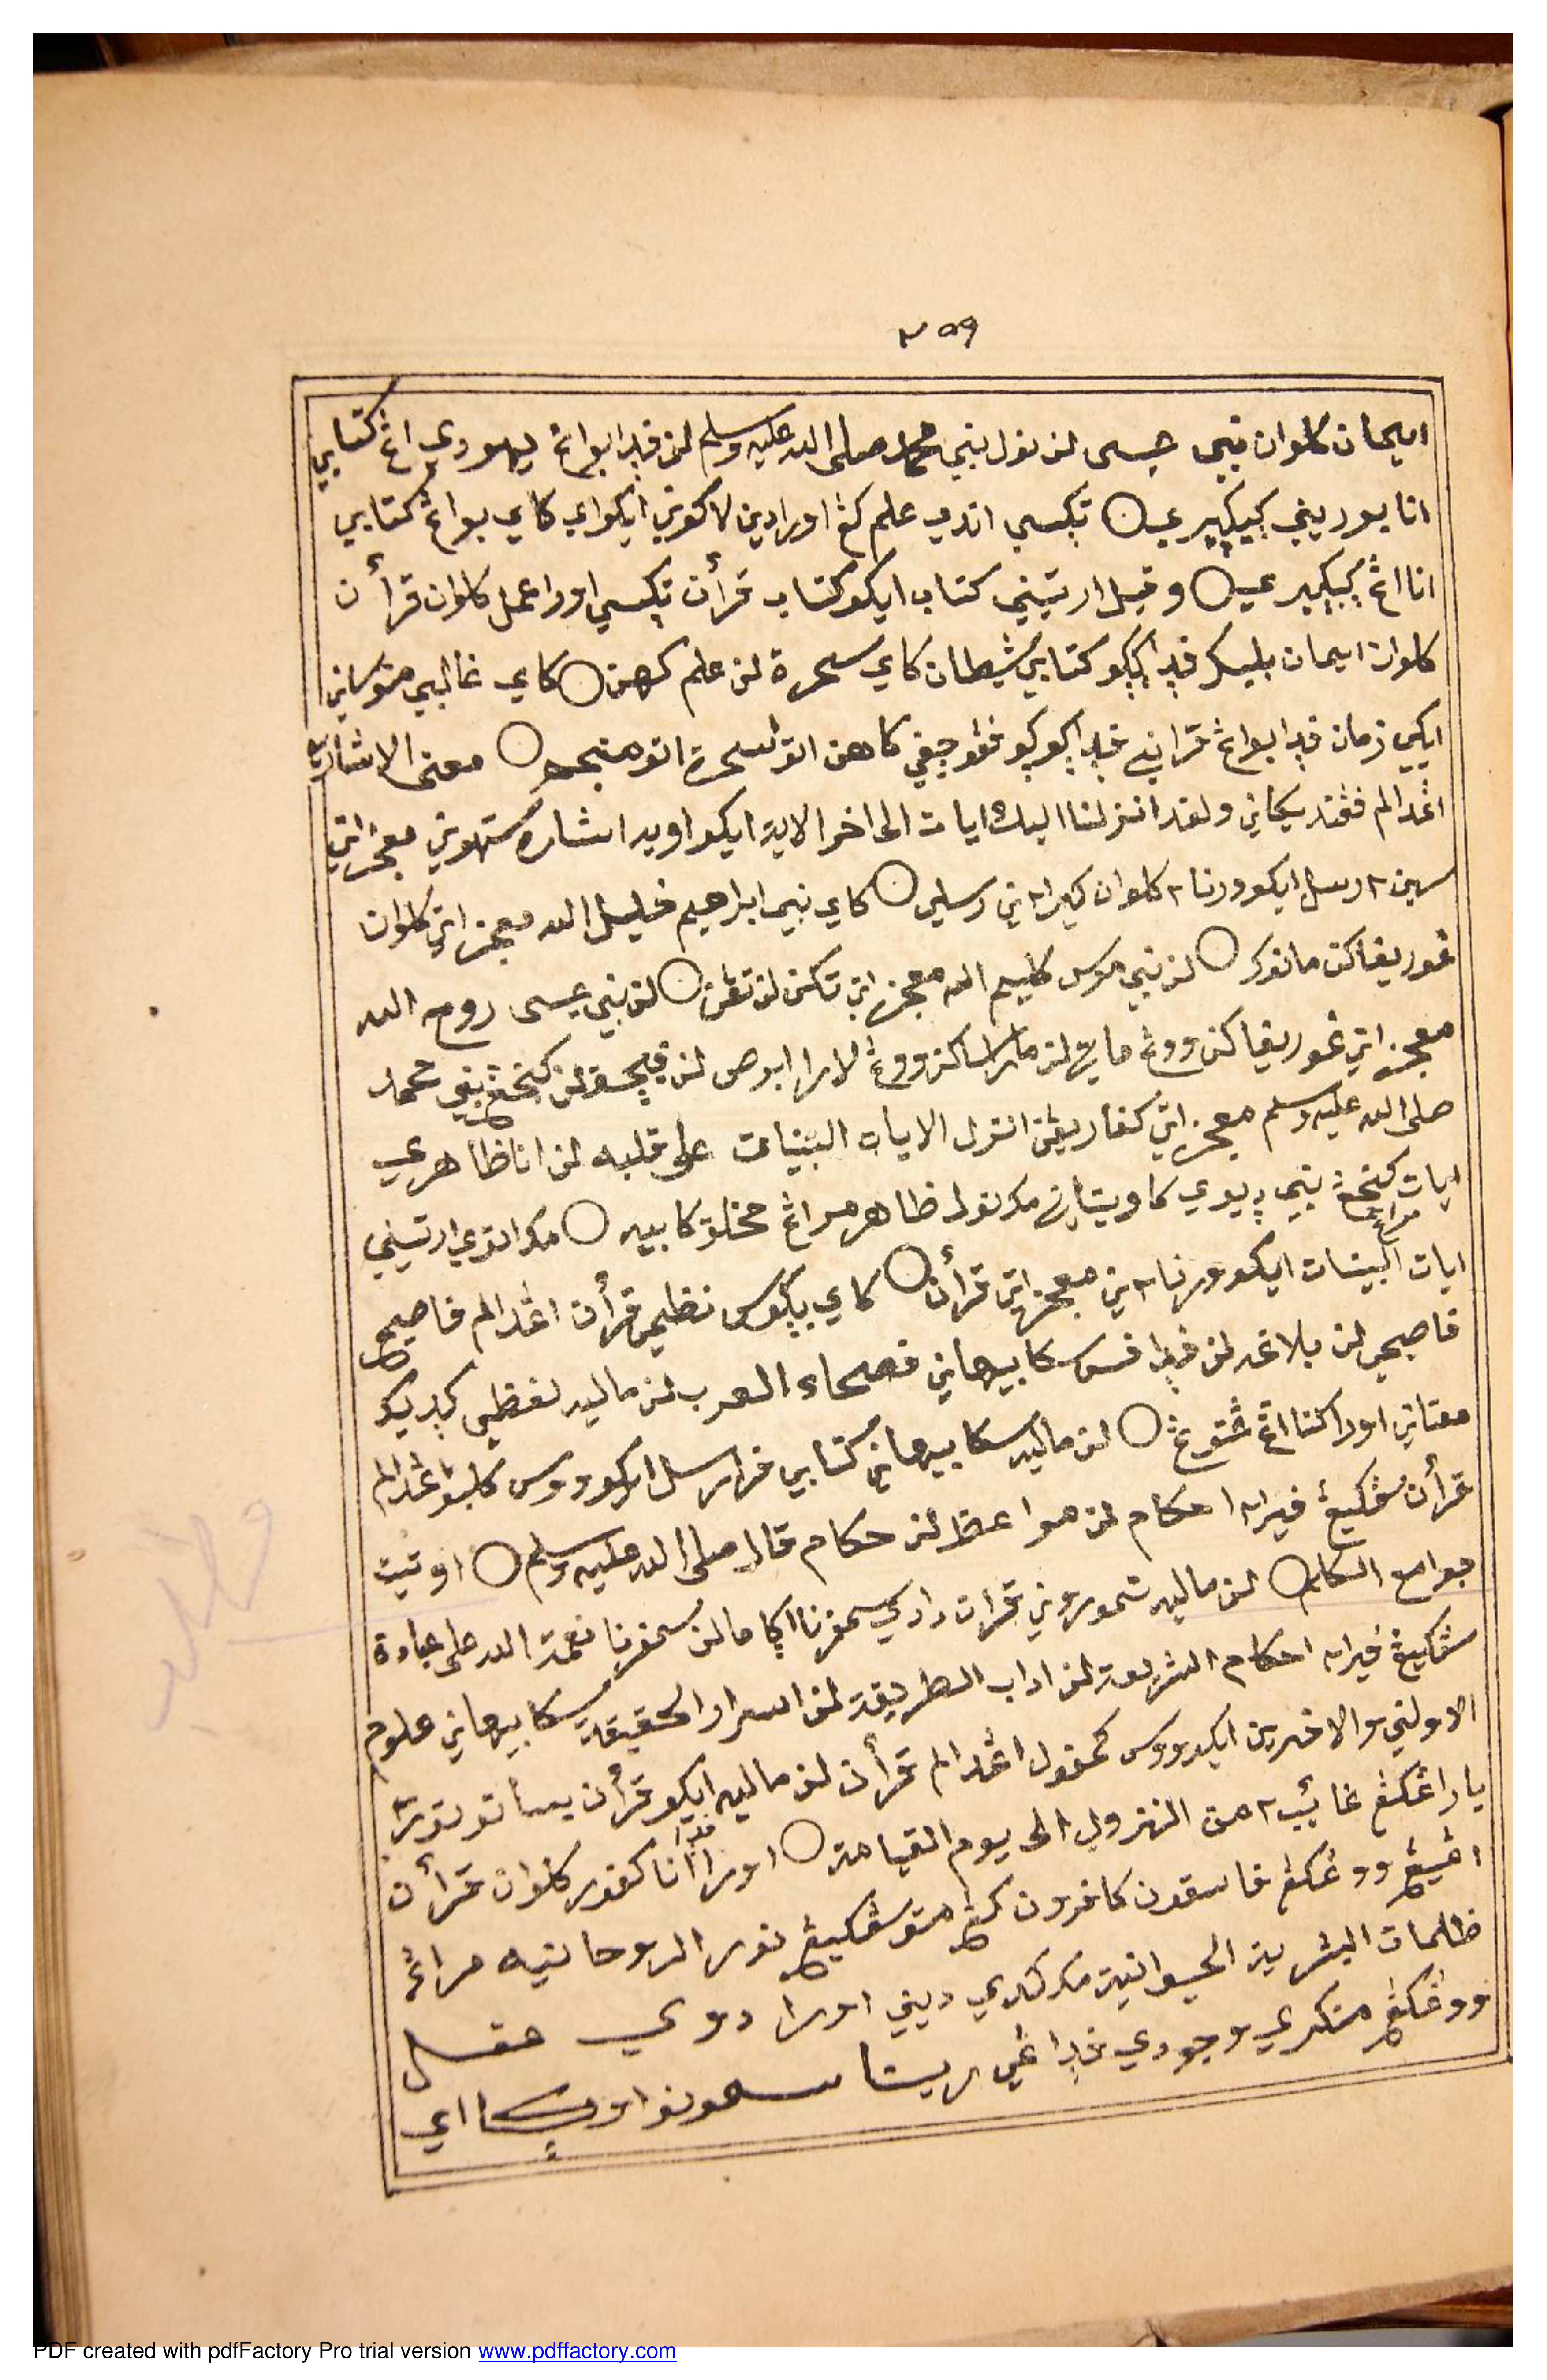 ٢٥٩
ايمان كلوان نبي عيسى لن نول نبي محمد صلى الله عليه وسلم لن ڤدا بواڠ يهودي اڠ كتابي
انا بوريني ڮيڮيري ○ تڮسي اندي علم كڠ اورا دين لاكوني ايكو اي كاي بواڠ كتابي
انا اڠ ڮيڮيري ○ وقيل ارتيني كتاب ايكو كتاب قرأن تڮسي اورا عمل كلوان قرأن
كلوان ايمان بليك ڤدا كتابي شيطان كاي سحرة لن علم كهن ○ كاي غالبي منوساني
ايكي زمان ڤدا بواڠ قراني ڤدا كاهن اتوا سحرة اتو منجم ○ معنى الاشارة
اڠدالم ڤڠنديكاني ولقد انزلنا اليك ايات الى اخر الاية ايكو اويه اشاره ستهوني معجزاتي
سين٢ رسل ايكو ورنا٢ كلوان كيرا٢ني رسلي ○ كاي نبي ابراهيم خليل الله معجزاتي كلوان
ڠوريفاكن مانوك ○ لن نبي موسى كليم الله معجزاتي تكن لن تڠن ○ لن نبي عيسى روح الله
معجزاتي ڠوريفاكن ووڠ ماتي لن ماراساكن ووڠ لارا ابرص لن ڤيچق لن كنجڠ نبي محمد
صلى الله عليه وسلم معجزاتي كفاريڠن انزل الايات البينات على قلبه لن انا ظاهري
ايات كنجڠ نبي ديوي كاويتاني مك نولي ظاهر مراڠ مخلوق كابيه ○ مك اتوي ارتيني
ايات البينات ايكو ورنا٢ني معجزاتي قرأن ○ كاي بڮوس نظمي قرأن اڠدالم فاصيح
فاصيحي لن بلاغه لن ڤدا افس سكابيهاني فصحاء العرب لن ماليه لفظي كديك
معناني اورا كنا اڠ ڠتوڠ ○ لن ماليه سكابيهاني كتابي ڤرا رسل ايكو ووس كلبو اڠدالم
قرأن سڤكيڠ ڤيرا٢ احكام لن مواعظ لن حكام قال صلى الله عليه وسلم ○ اوتيت
جوامع الكلم ○ لن ماليه تموروني قرأن دادي سمفرنا اڮاما لن سمفرنا نعمة الله على عبادة
سڤكيڠ ڤيرا٢ احكام الشريعة لن اداب الطريقة لن اسرار الحقيقة سكابيهاني علوم
الاولين والاخرين ايكو ووس كمفول اڠدالم قرأن لن ماليه ايكو قرأن
غائب٢ من النزول الى يوم القيامة ○ اورا انا ڤدا كفور كلوان قرأن
اڠيڠ ووڠكڠ فاسقون كافرون كڠ متو سڤكيڠ نور الروحانيه مراڠ
ظلمات البشرية الحيوانية مك دادي ديني اورا دوي عقل
ووڠكڠ منكري وجودي ڤداڠي ريتا